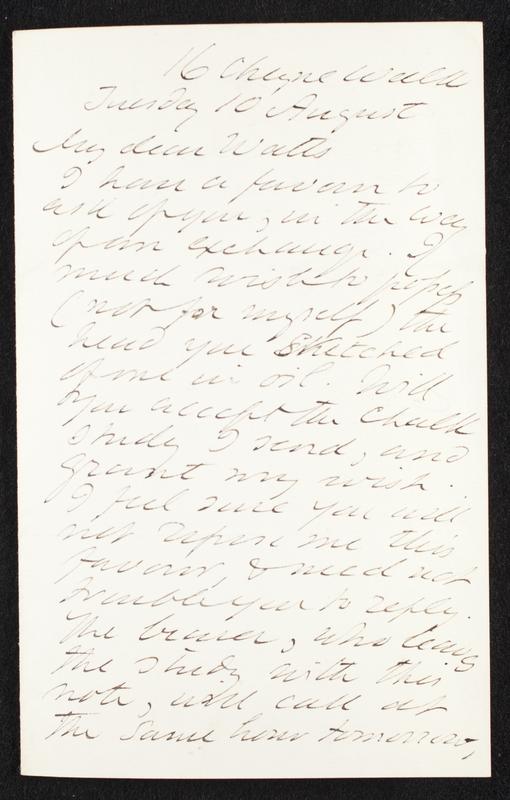 16 Cheyne Walk
Tuesday 10 August
My dear Watts
I have a favour to
ask of you, in the way
of an exchange. I
much wish to possess
(not for myself) the
head you sketched
of me in oil. Will
you accept the chalk
study I send, and
grant my wish.
I feel sure you will
not refuse me this
favour, & need not
trouble you to reply.
The bearer, who leaves
the study with this
note, will call at
the same hour tomorrow,